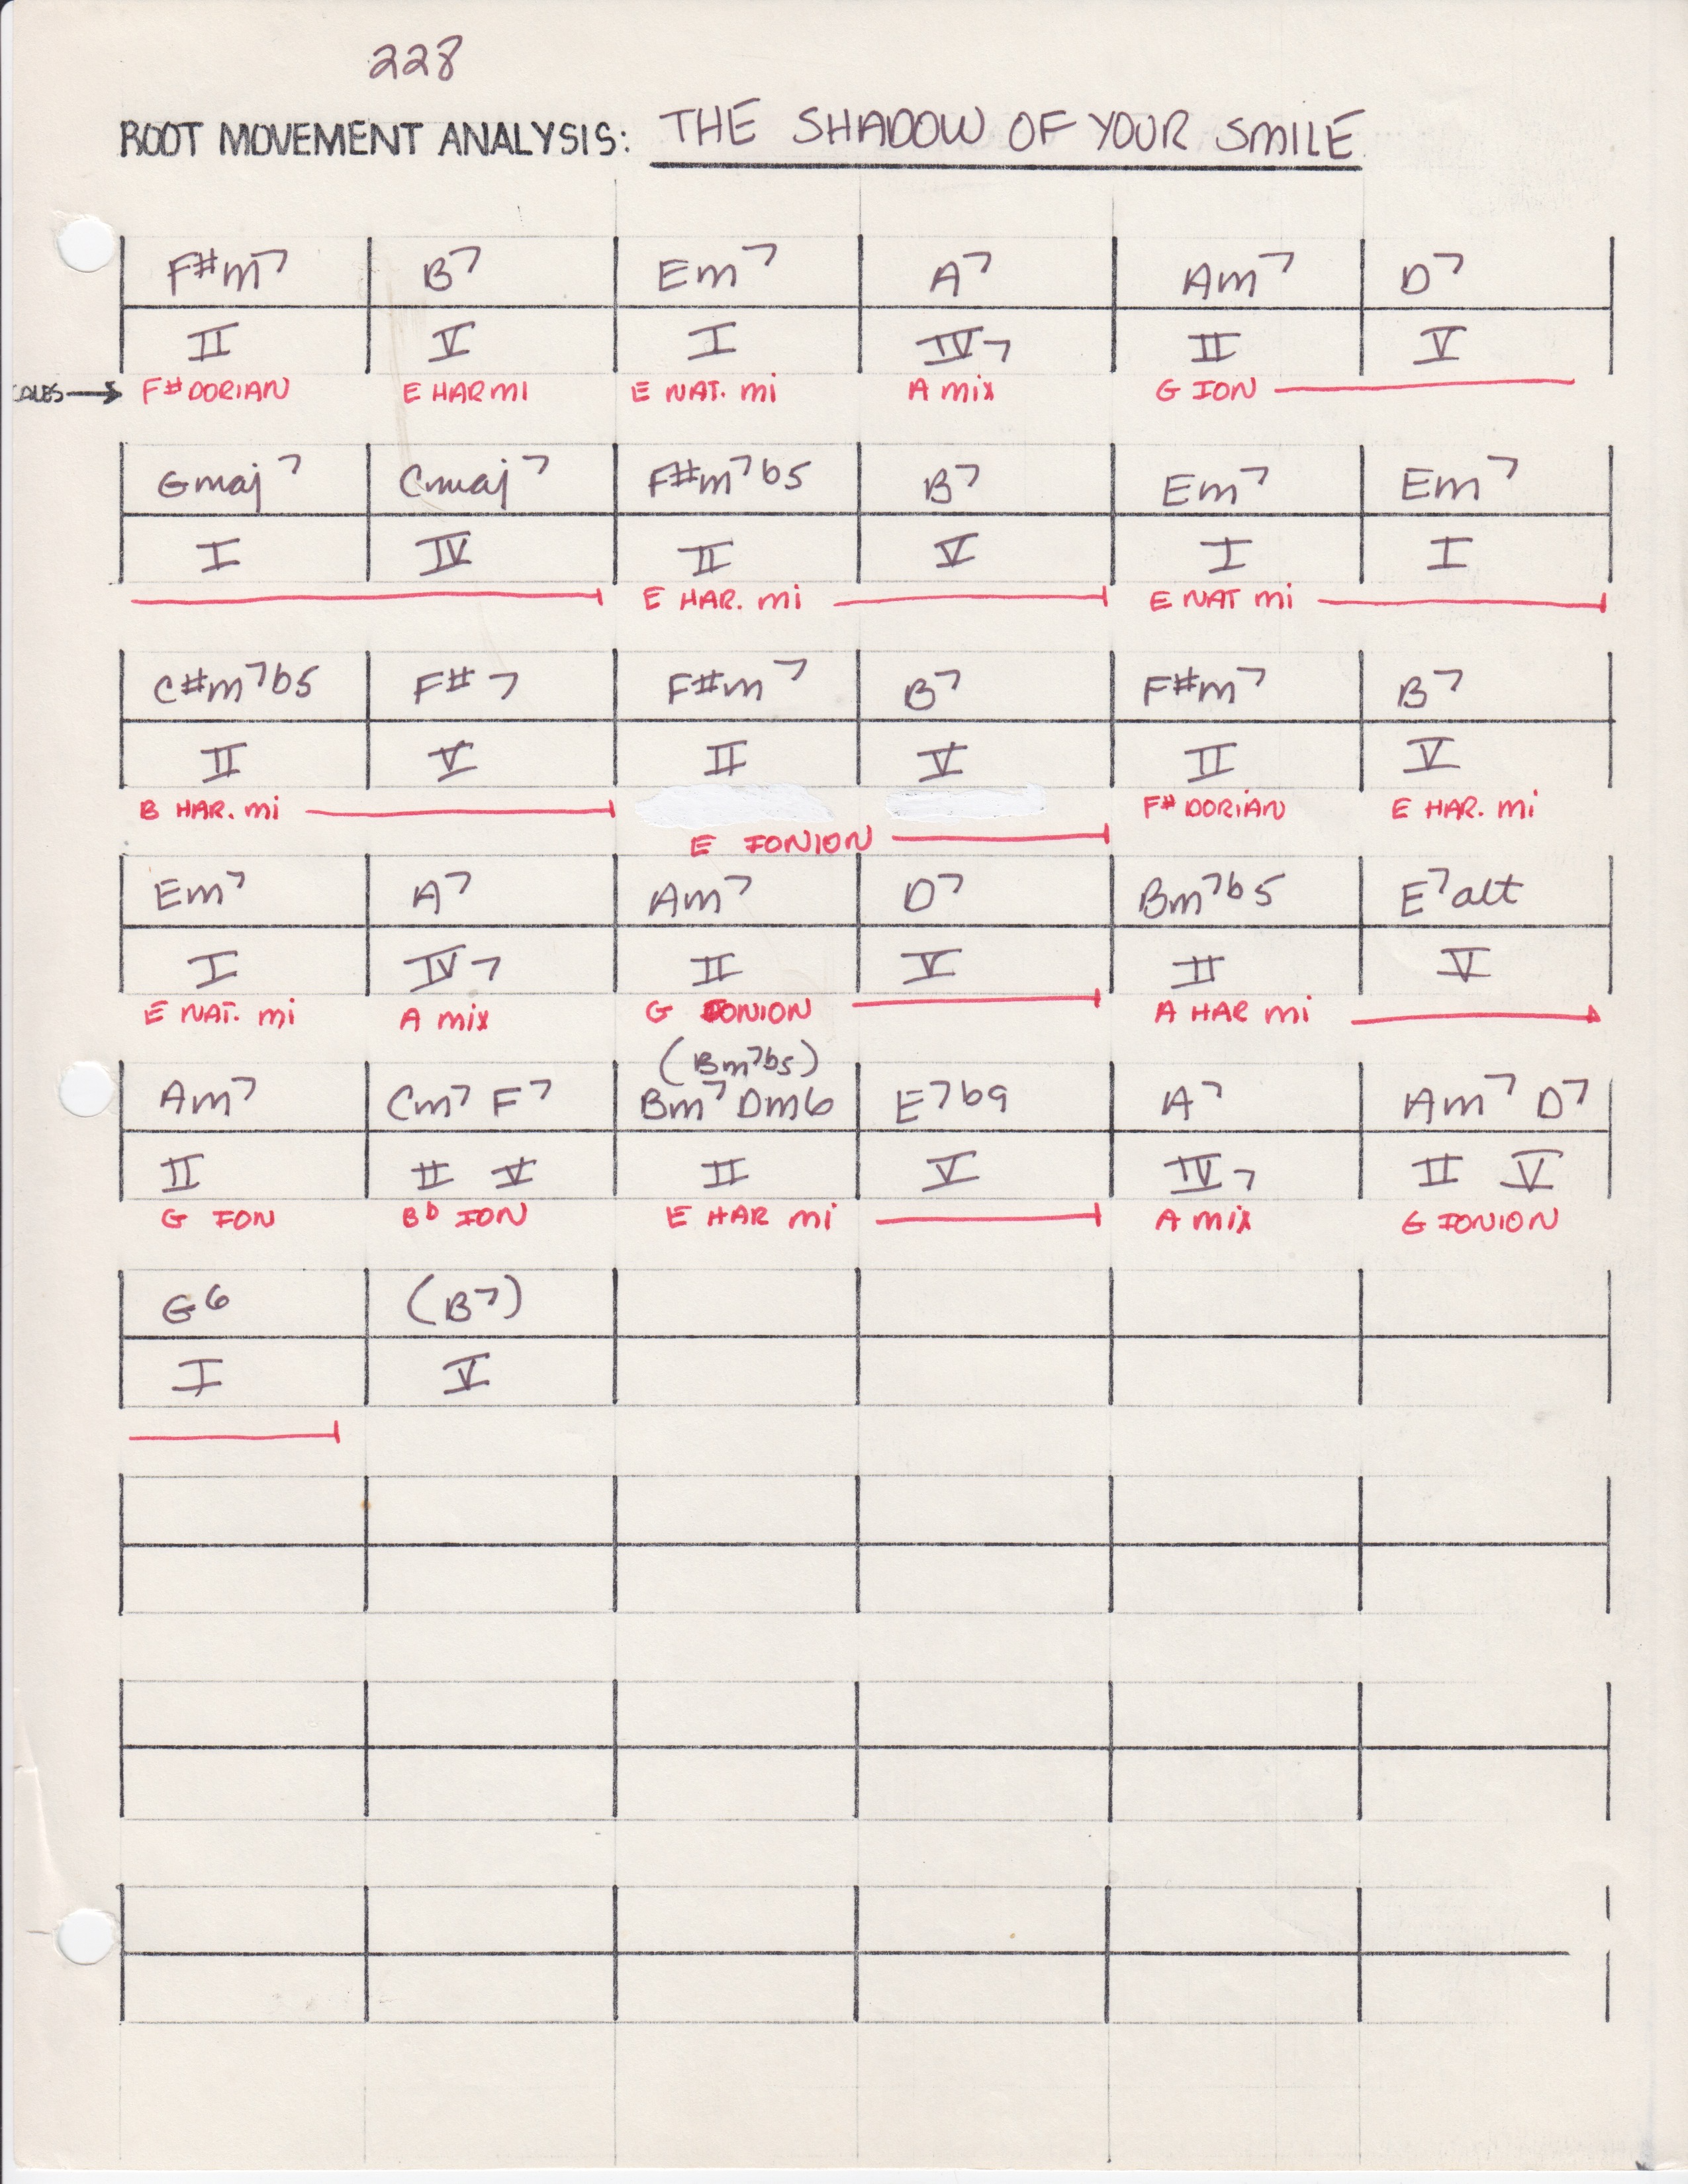 228
ROOT MOVEMENT ANALYSIS: THE SHADOW OF YOUR SMILE
F#m7 B7 Em7 A7 Am7 D7
II V I IV7 II V
F# DORIAN E HAR MI E NAT. mi A mix G ION
Gmaj7 Cmaj7 F#m7b5 B7 Em7 Em7
I IV II V I I
E HAR. mi E NAT mi
C#m7b5 F#7 F#m7 B7 F#m7 B7
II V II V II V
B HAR. mi F# DORIAN E HAR. mi
E IONION
Em7 A7 Am7 D7 Bm7b5 E7alt
I IV7 II V II V
E NAT. mi A mix G IONION A HAR mi
(Bm7b5)
Am7 Cm7 F7 Bm7 Dm6 E7b9 A7 Am7 D7
II II V II V IV7 II V
G ION Bb ION E HAR mi A mix G IONION
G6 (B7)
I V